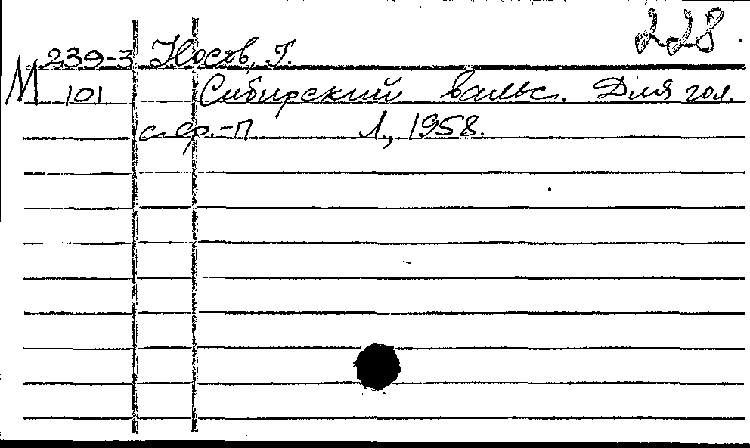 228.
239-3 Носов, Г.
М 101 Сибирский вальс. Для гол.
с фр.-п Л., 1958.